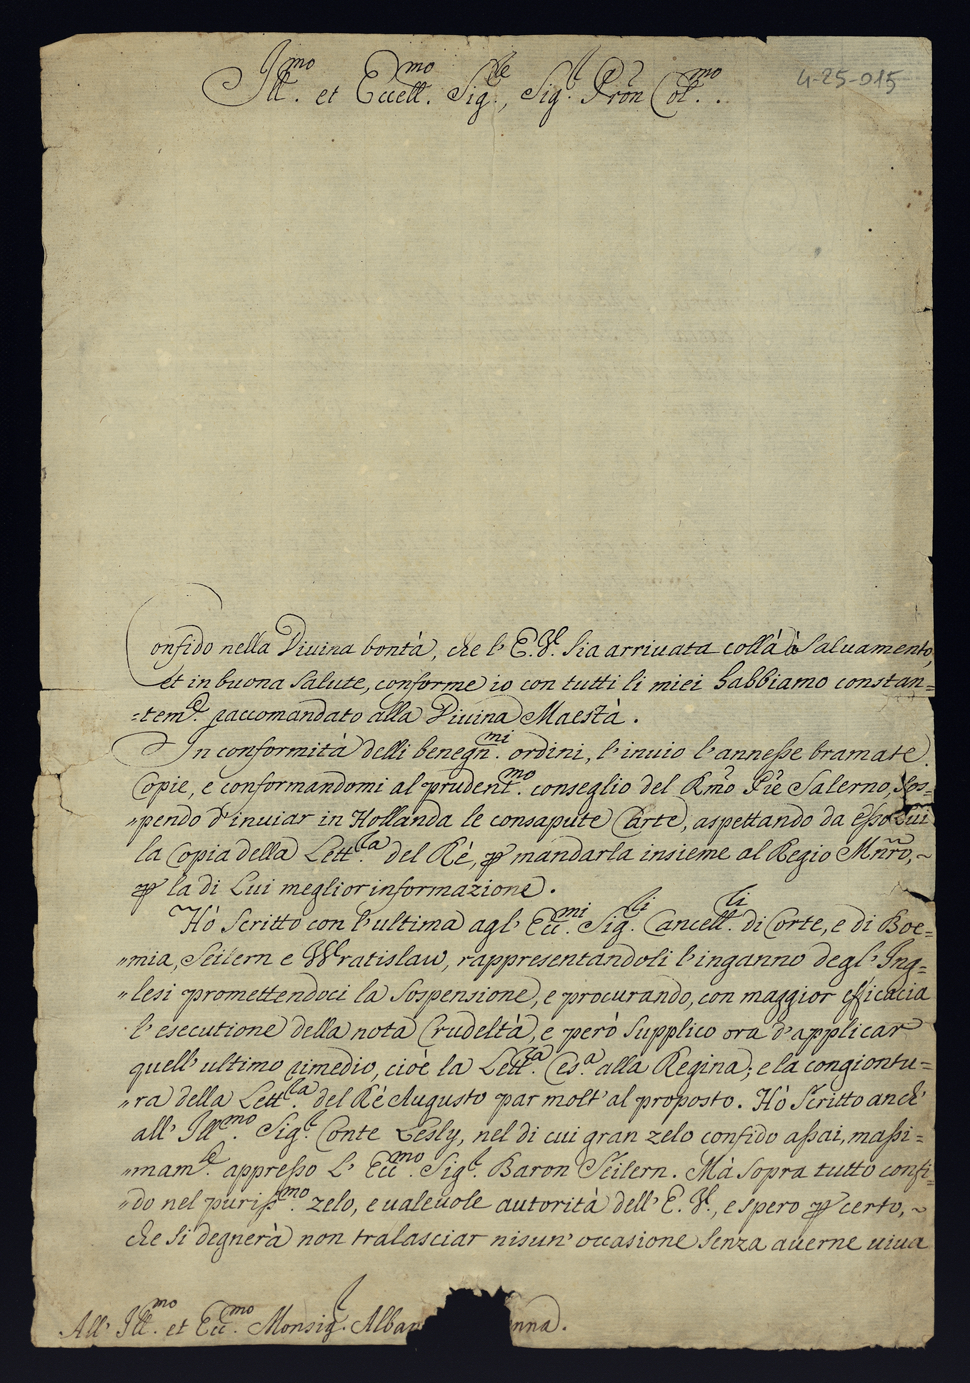 Ill.mo et Eccell.mo Sig.re, Sig.r Pron Col.mo
4-25-015
Confido nella Diuina bontà, che l'E.V. sia arriuata collà à saluamento,
et in buona salute, conforme io con tutti li miei habbiamo constan=
=tem.e raccomandato alla Diuina Maestà.
In conformità delli benegn.mi ordini, l'inuio l'annesse bramate
Copie, e conformandomi al prudent.mo conseglio del Rmo Pre Salerno, sos=
"pendo d'inuiar in Hollanda le consapute Carte, aspettando da esso
la Copia della Lett.ra del Ré, p mandarla insieme al Regio Mnro, ~
p la di Lui meglior informazione.
Hò scritto con l'ultima agl' Ecc.mi Sig.ri Cancell.ri di Corte, e di Boe=
"mia, Seilern e Wratislaw, rappresentandoli l'inganno degl' Ing=
"lesi promettendoci la sospensione, e procurando, con maggior efficacia
l'esecutione della nota Crudeltà, e però supplico ora d'applicar
quell' ultimo rimedio, cioè la Lett.ra Ces.a alla Regina; e la congiontu=
"ra della Lett.ra del Ré Augusto par molt' al proposto. Hò scritto anch'
all' Ill.mo Sig.r Conte Lesly, nel di cui gran zelo confido assai, massi=
"mam.e appresso l' Ecc.mo Sig.r Baron Seilern. Mà sopra tutto confi=
"do nel puriss.mo zelo, e ualeuole autorità dell' E.V., e spero p certo, ~
che si degnerà non tralasciar nisun' occasione senza auerne uiua
All' Ill.mo et Ecc.mo Monsig.r Alban nna.